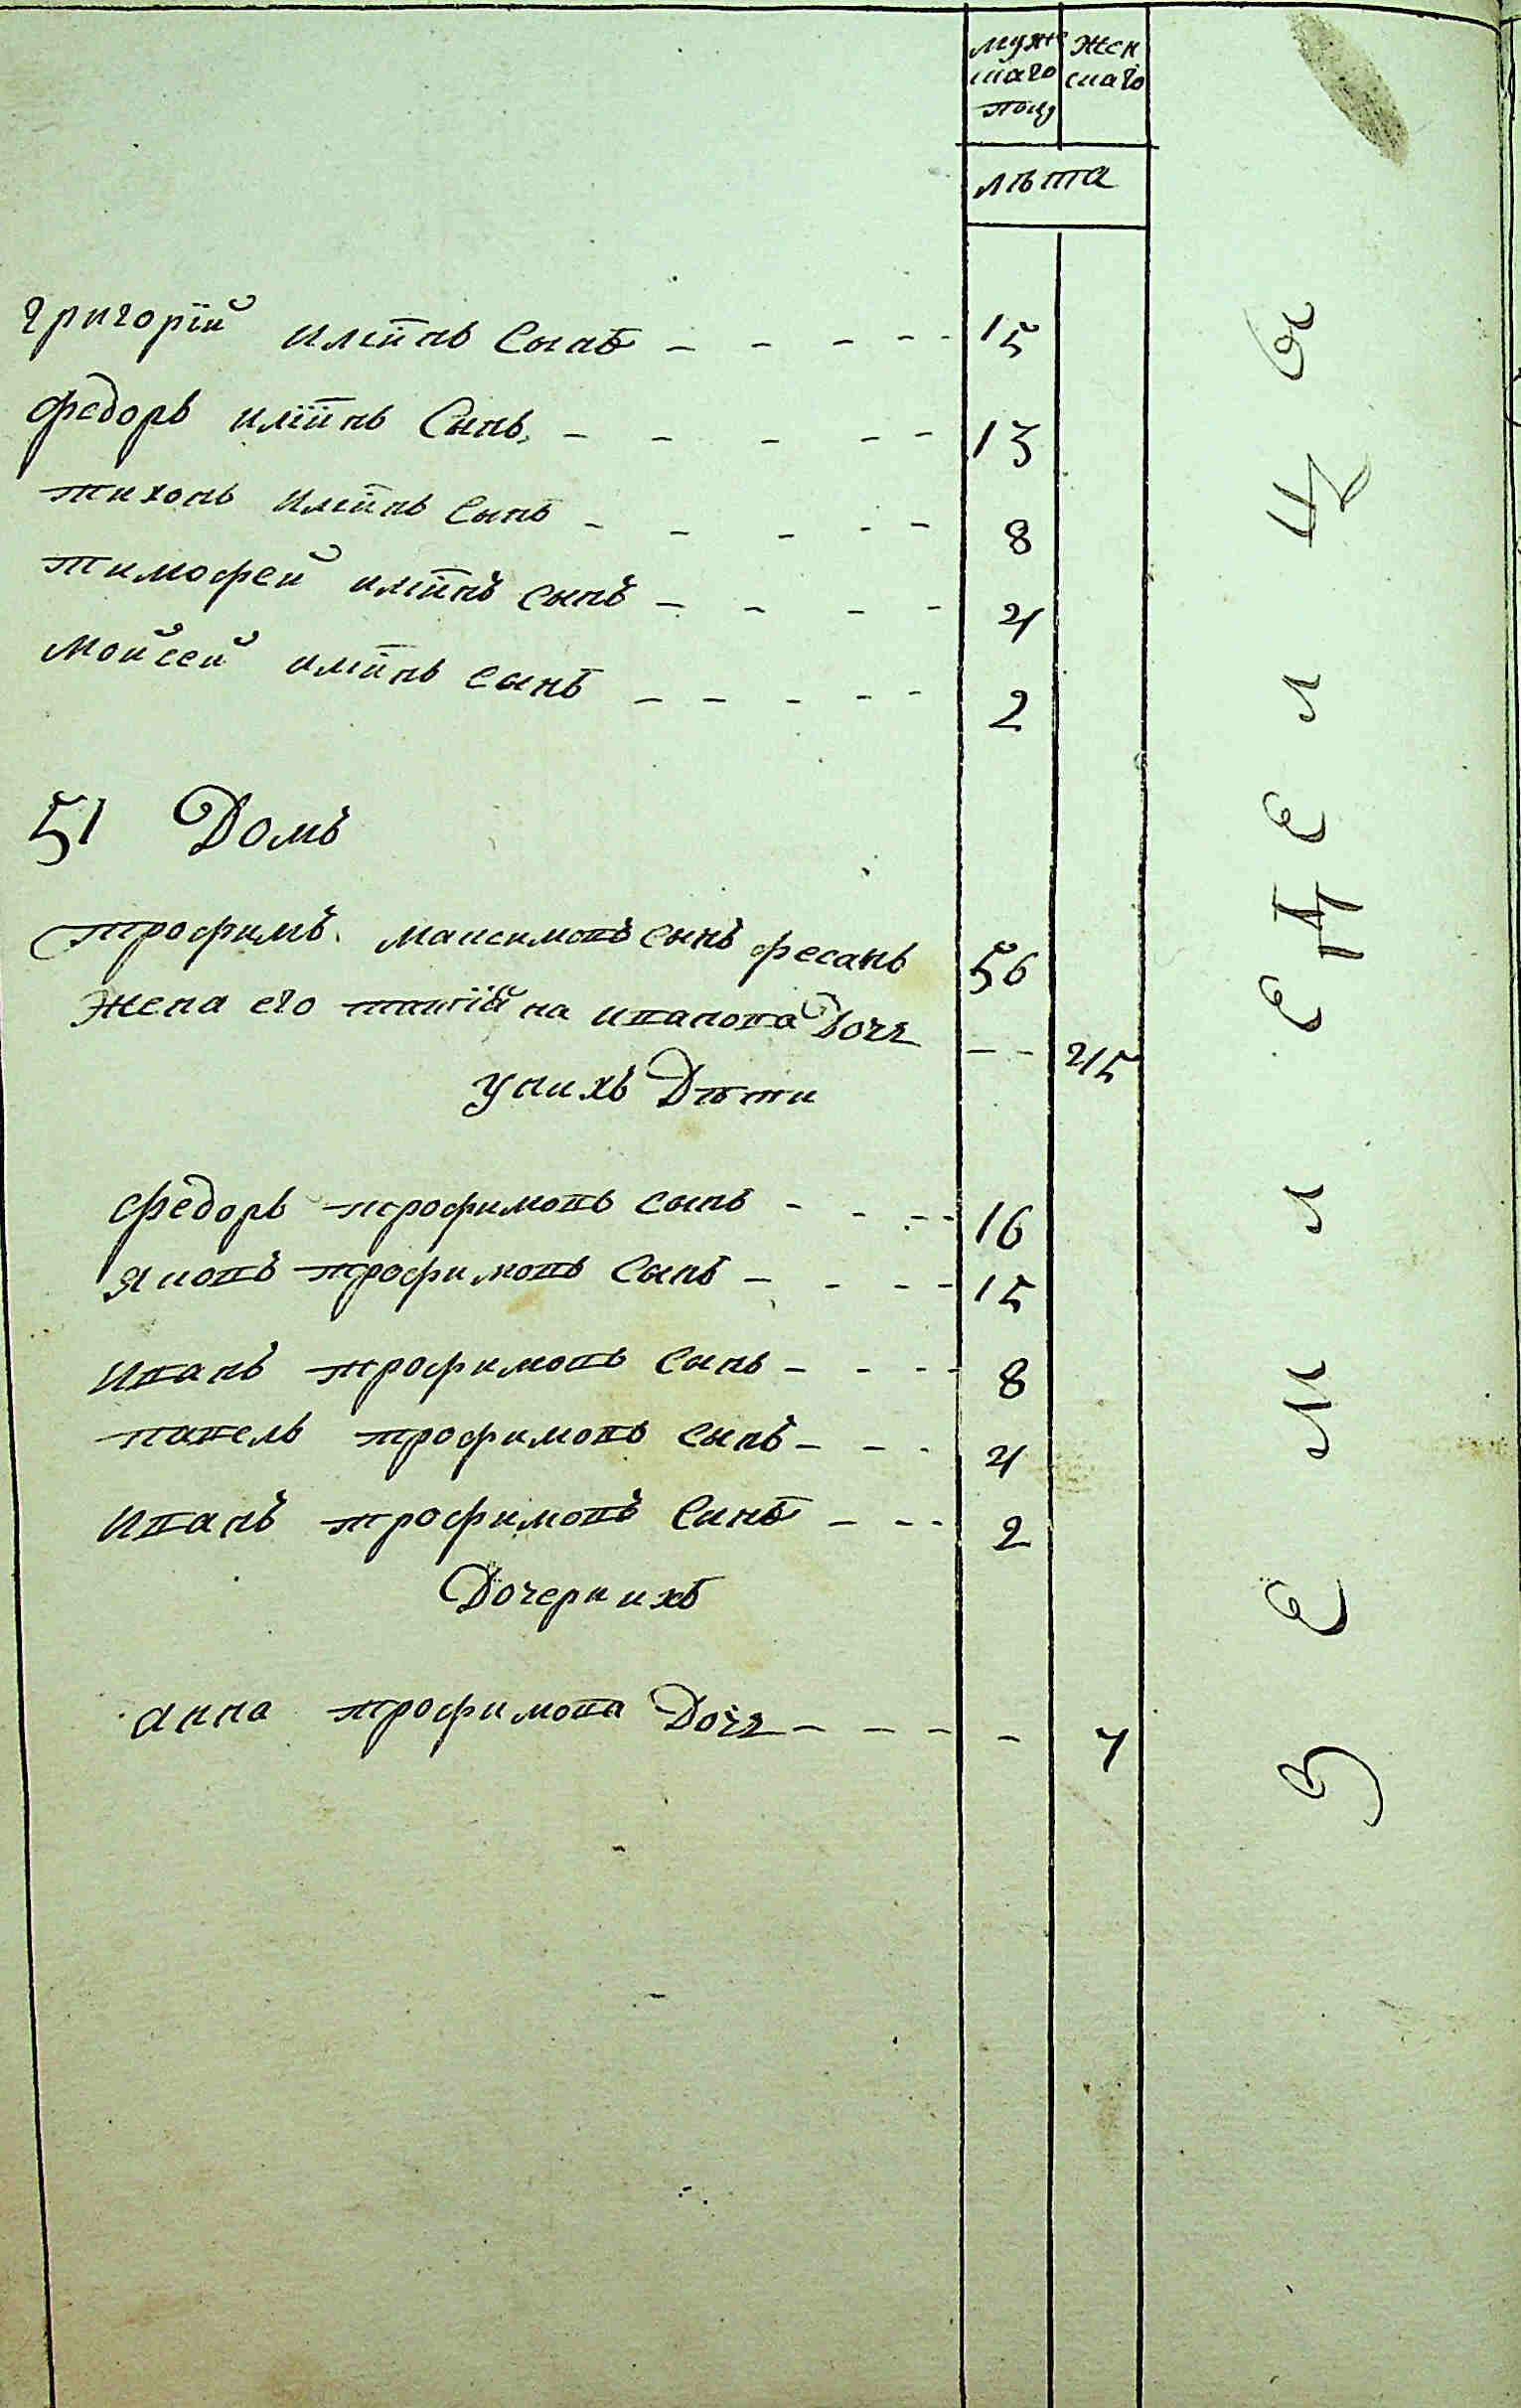 мужескаго полу
женскаго
лѣта
григорїй илїинъ сынъ 15
федоръ илїинъ сынъ 13
тихонъ илїинъ сынъ 8
тимофей илїинъ сынъ 4
мойсей илїинъ сынъ 2
51 Домъ
трофимъ максимовъ сынъ фесанъ 56
жена его иванова дочь 45
у нихъ дѣти
федоръ трофимовъ сынъ 16
яковъ трофимовъ сынъ 15
иванъ трофимовъ сынъ 8
павелъ трофимовъ сынъ 4
иванъ трофимовъ синъ 2
Дочер ихъ
анна трофимова дочь 7
ЗЕМЛЕДЕЛЦЫ